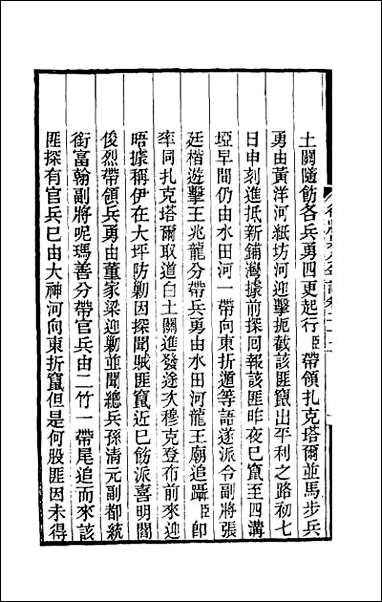 土關隨飭各兵勇四更起行臣帶領扎克塔爾並馬步兵
勇由黃洋河紙坊河迎擊扼截該匪竄出平利之路初七
日申刻進抵新鋪灣據前探回報該匪昨夜已竄至四溝
埡早間仍由水田河一帶向東折遁等語遂派令副將張
廷楷遊擊王兆龍分帶兵勇由水田河龍王廟追躡臣卽
率同扎克塔爾取道白土關進發遂次穆克登布前來迎
晤據稱伊在大坪防勦因探聞賊匪竄近已飭派喜明閻
俊烈帶領兵勇由董家梁迎勦並聞總兵孫清元副都統
銜富翰副將呢瑪善分帶官兵由二竹一帶尾追而來該
匪探有官兵已由大神河向東折竄但是何股匪因未得